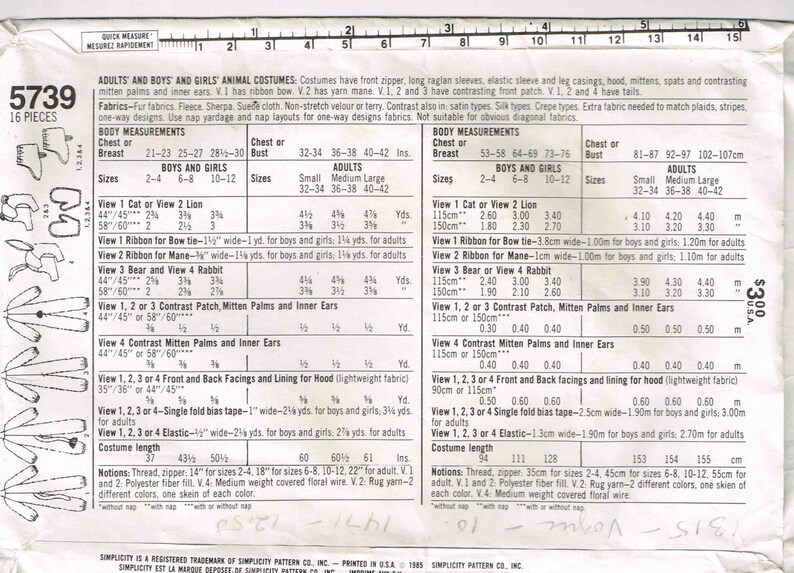 QUICK MEASURE*
MESUREZ RAPIDEMENT
1 2 3 4 5 6
1 2 3 4 5 6 7 8 9 10 11 12 13 14 15
5739
16 PIECES
ADULTS' AND BOYS' AND GIRLS' ANIMAL COSTUMES: Costumes have front zipper, long raglan sleeves, elastic sleeve and leg casings, hood, mittens, spats and contrasting
mitten palms and inner ears. V.1 has ribbon bow. V.2 has yarn mane. V.1, 2 and 3 have contrasting front patch. V.1, 2 and 4 have tails.
Fabrics—Fur fabrics. Fleece. Sherpa. Suede cloth. Non-stretch velour or terry. Contrast also in: satin types. Silk types. Crepe types. Extra fabric needed to match plaids, stripes,
one-way designs. Use nap yardage and nap layouts for one-way designs fabrics. Not suitable for obvious diagonal fabrics.
BODY MEASUREMENTS
Chest or Chest or
Breast 21-23 25-27 28½-30 Bust 32-34 36-38 40-42 Ins.
BOYS AND GIRLS ADULTS
Sizes 2-4 6-8 10-12 Sizes Small Medium Large
32-34 36-38 40-42
View 1 Cat or View 2 Lion
44"/45"** 2¾ 3⅜ 3¾ 4½ 4⅝ 4⅞ Yds.
58"/60"** 2 2½ 3 3⅜ 3½ 3⅝ "
View 1 Ribbon for Bow tie—1½" wide—1 yd. for boys and girls; 1¼ yds. for adults
View 2 Ribbon for Mane—⅜" wide—1⅛ yds. for boys and girls; 1⅛ yds. for adults
View 3 Bear and View 4 Rabbit
44"/45"** 2⅝ 3⅜ 3¾ 4¼ 4⅝ 4¾ Yds.
58"/60"** 2 2⅜ 2⅞ 3⅜ 3½ 3⅝ "
View 1, 2 or 3 Contrast Patch, Mitten Palms and Inner Ears
44"/45" or 58"/60"***
⅜ ½ ½ ½ ½ ½ Yd.
View 4 Contrast Mitten Palms and Inner Ears
44"/45" or 58"/60"***
⅜ ⅜ ⅜ ½ ½ ½ Yd.
View 1, 2, 3 or 4 Front and Back Facings and Lining for Hood (lightweight fabric)
35"/36" or 44"/45"*
⅝ ⅝ ⅝ ⅝ ⅝ ⅝ Yd.
View 1, 2, 3 or 4—Single fold bias tape—1" wide—2⅛ yds. for boys and girls; 3¼ yds.
for adults
View 1, 2, 3 or 4 Elastic—½" wide—2⅛ yds. for boys and girls; 2⅞ yds. for adults
Costume length
37 43½ 50½ 60 60½ 61 Ins.
Notions: Thread, zipper: 14" for sizes 2-4, 18" for sizes 6-8, 10-12, 22" for adult. V.1
and 2: Polyester fiber fill. V.4: Medium weight covered floral wire. V.2: Rug yarn—2
different colors, one skein of each color.
*without nap **with nap ***with or without nap
BODY MEASUREMENTS
Chest or Chest or
Breast 53-58 64-69 73-76 Bust 81-87 92-97 102-107cm
BOYS AND GIRLS ADULTS
Sizes 2-4 6-8 10-12 Sizes Small Medium Large
32-34 36-38 40-42
View 1 Cat or View 2 Lion
115cm** 2.60 3.00 3.40 4.10 4.20 4.40 m
150cm** 1.80 2.30 2.70 3.10 3.20 3.30 "
View 1 Ribbon for Bow tie—3.8cm wide—1.00m for boys and girls; 1.20m for adults
View 2 Ribbon for Mane—1cm wide—1.00m for boys and girls; 1.10m for adults
View 3 Bear or View 4 Rabbit
115cm** 2.40 3.00 3.40 3.90 4.30 4.40 m
150cm** 1.90 2.10 2.60 3.10 3.20 3.30 "
View 1, 2 or 3 Contrast Patch, Mitten Palms and Inner Ears
115cm or 150cm***
0.30 0.40 0.40 0.50 0.50 0.50 m
View 4 Contrast Mitten Palms and Inner Ears
115cm or 150cm***
0.40 0.40 0.40 0.40 0.40 0.40 m
View 1, 2, 3 or 4 Front and Back facings and lining for hood (lightweight fabric)
90cm or 115cm*
0.50 0.60 0.60 0.60 0.60 0.60 m
View 1, 2, 3 or 4 Single fold bias tape—2.5cm wide—1.90m for boys and girls; 3.00m
for adults
View 1, 2, 3 or 4 Elastic—1.3cm wide—1.90m for boys and girls; 2.70m for adults
Costume length
94 111 128 153 154 155 cm
Notions: Thread, zipper: 35cm for sizes 2-4, 45cm for sizes 6-8, 10-12, 55cm for
adult. V.1 and 2: Polyester fiber fill. V.2: Rug yarn—2 different colors, one skein of
each color. V.4: Medium weight covered floral wire.
*without nap **with nap ***with or without nap
$3.00
U.S.A.
1,2,3&4
2&3
1,2,3&4
4
4
3
2
1315 - Vogue - 10.
1471 - 12.50
SIMPLICITY IS A REGISTERED TRADEMARK OF SIMPLICITY PATTERN CO., INC. — PRINTED IN U.S.A. © 1985 SIMPLICITY PATTERN CO., INC.
SIMPLICITY EST LA MARQUE DEPOSEE DE SIMPLICITY PATTERN CO., INC.